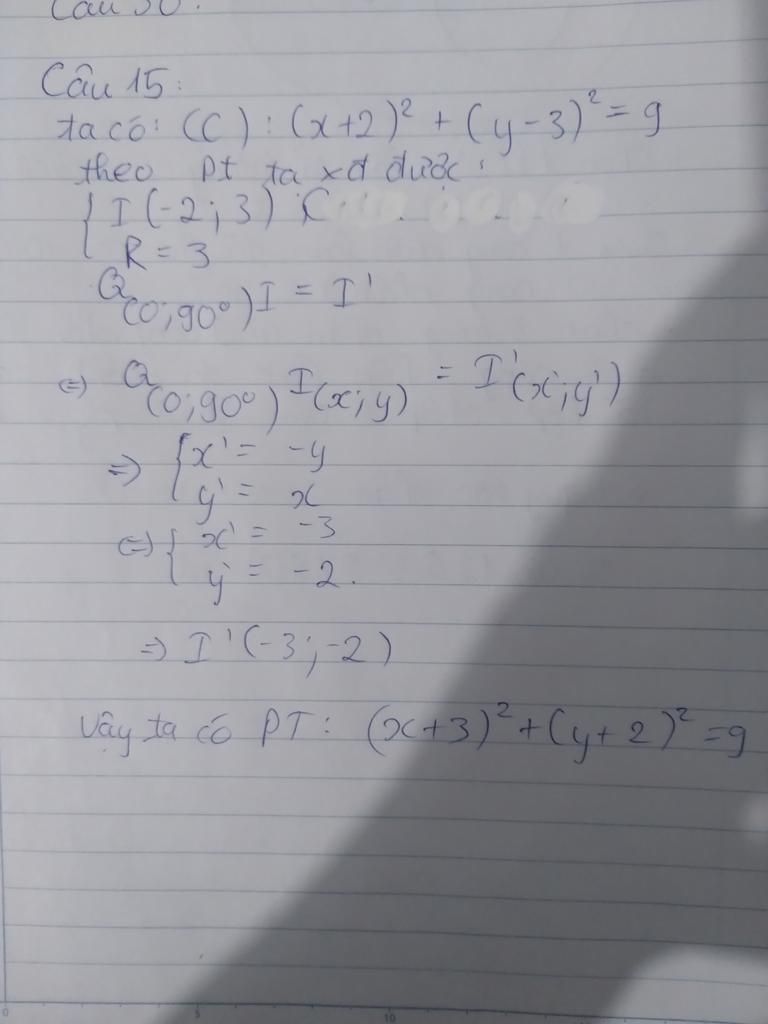 Câu 30:
Câu 15:
ta có: (C) : (x+2)² + (y-3)² = 9
theo pt ta xđ được:
{ I (-2; 3)
R = 3
Q(0; 90°) I = I'
⇔ Q(0; 90°) I(x; y) = I'(x'; y')
⇒ { x' = -y
y' = x
⇔ { x' = -3
y' = -2.
⇒ I' (-3; -2)
Vậy ta có PT: (x+3)² + (y+2)² = 9
0 5 10